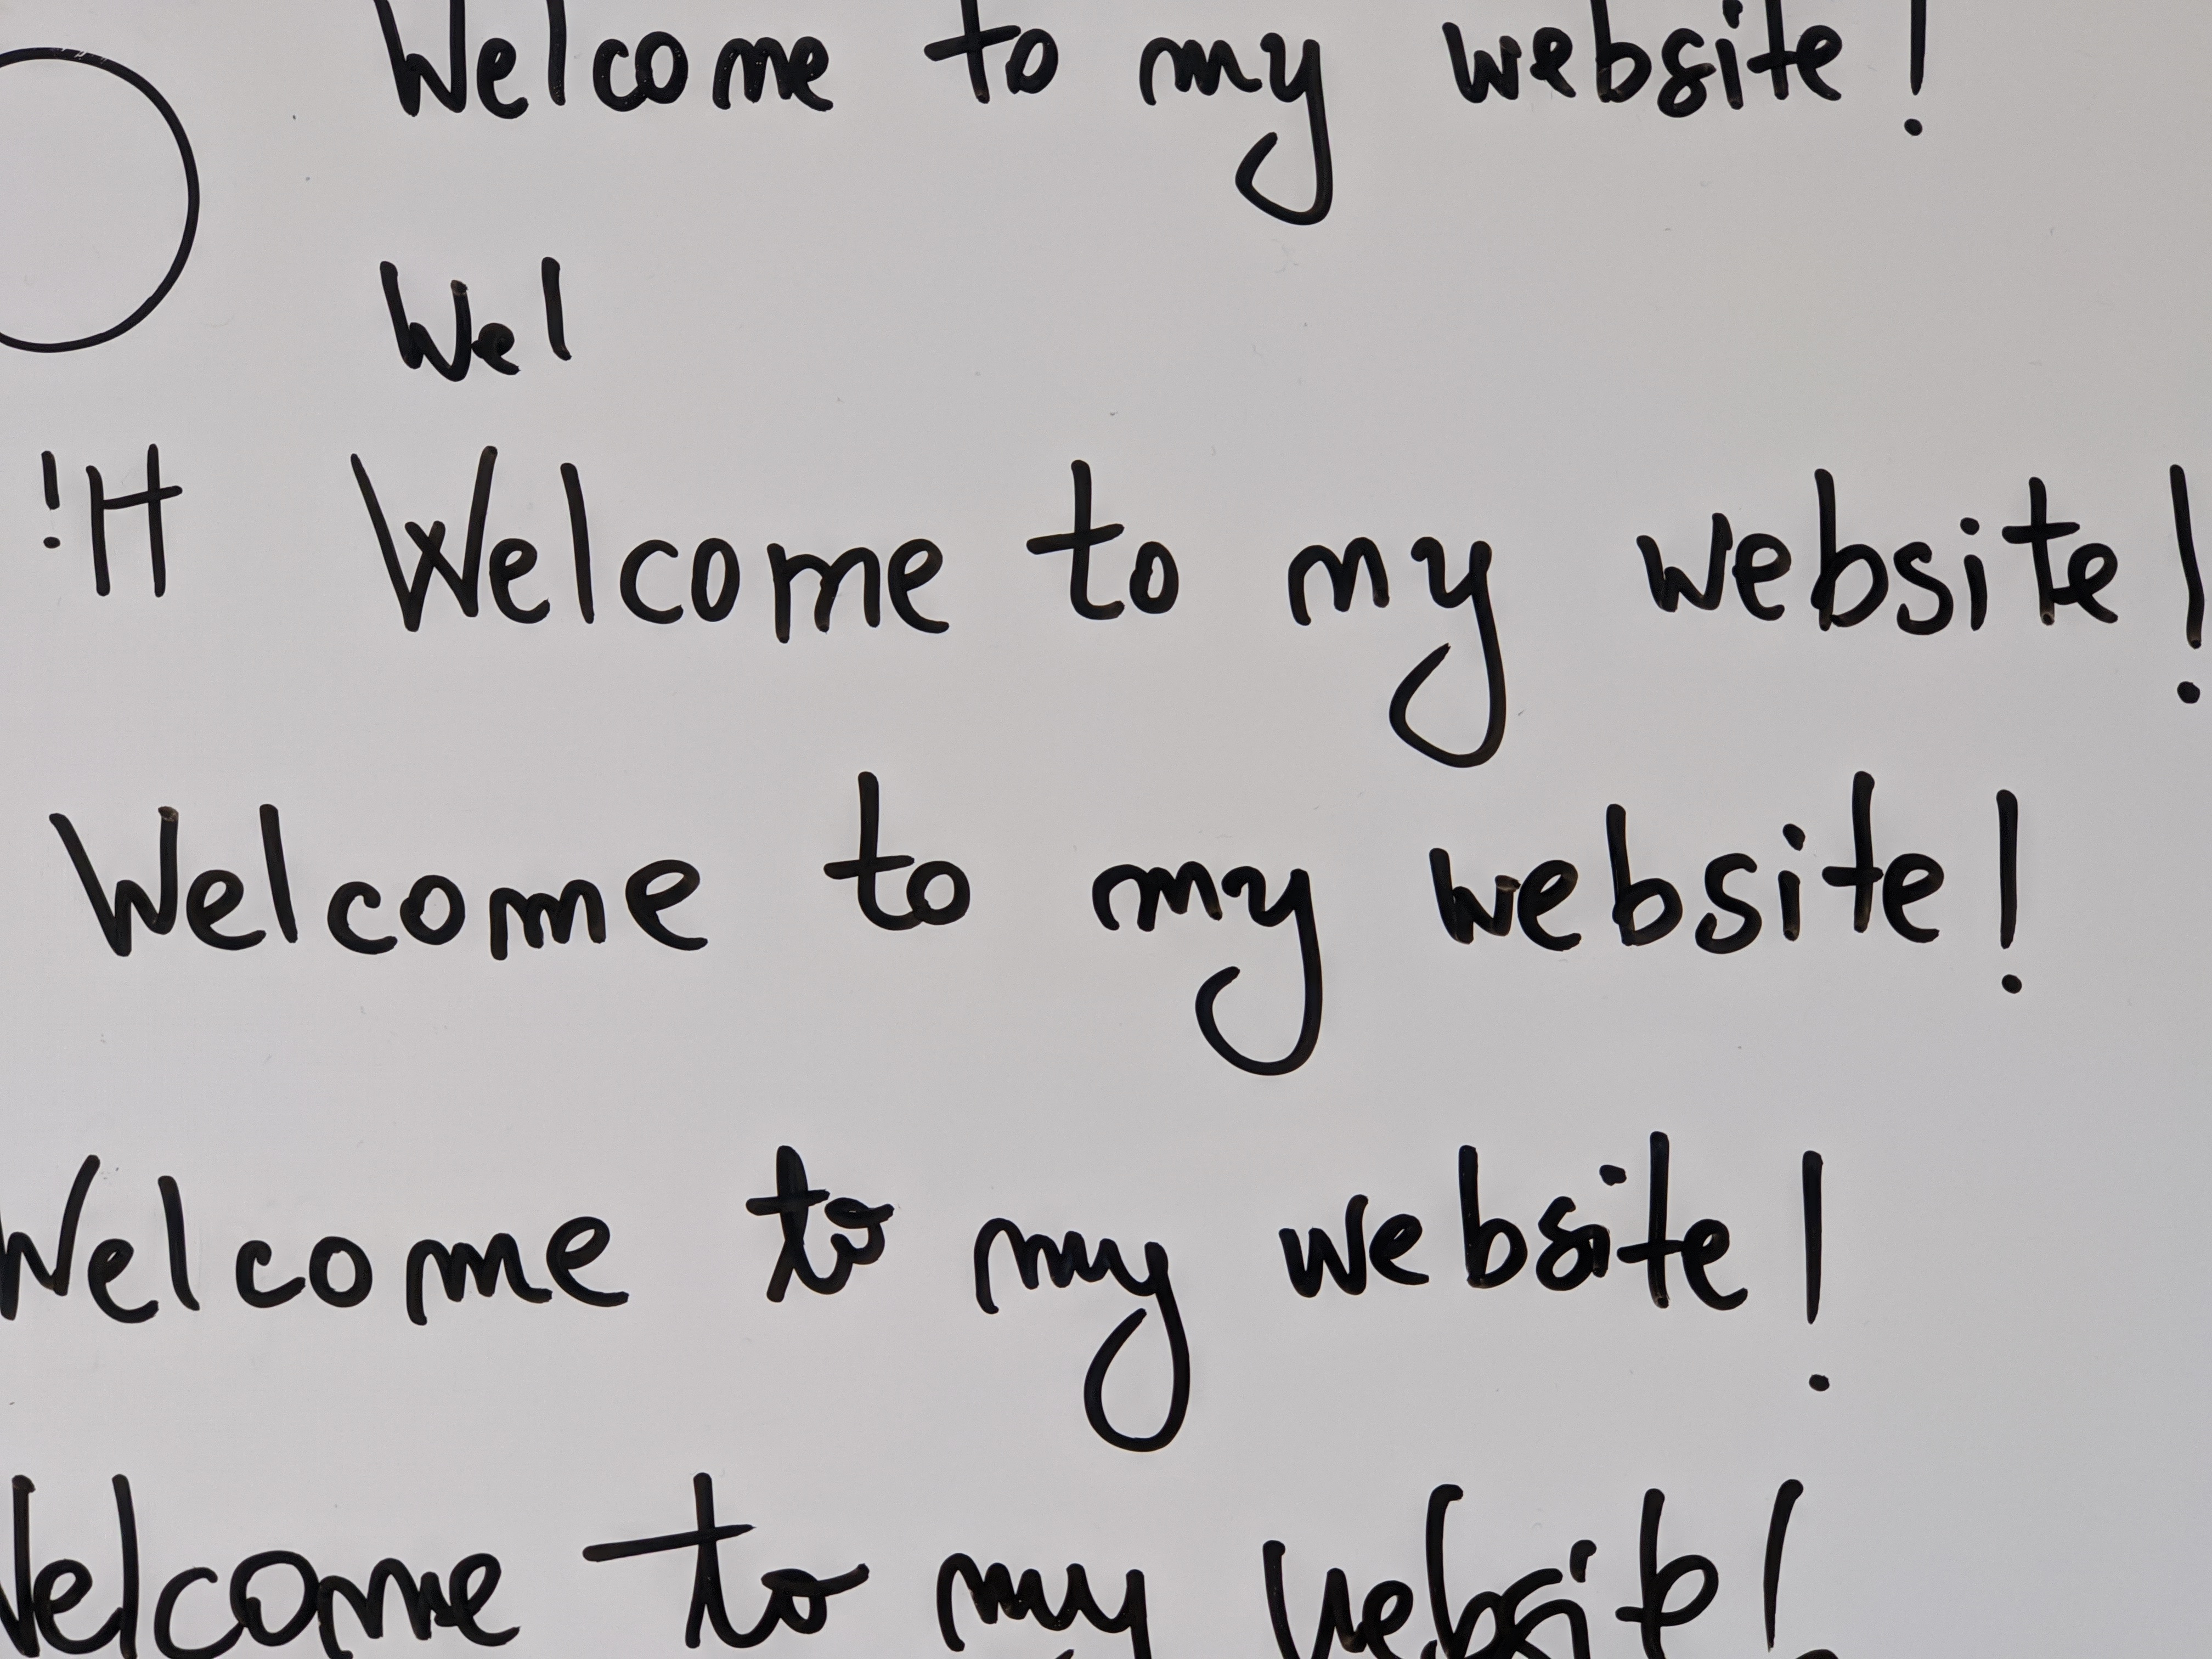 Welcome to my website!
Wel
!H Welcome to my website!
Welcome to my website!
Welcome to my website!
Welcome to my website!